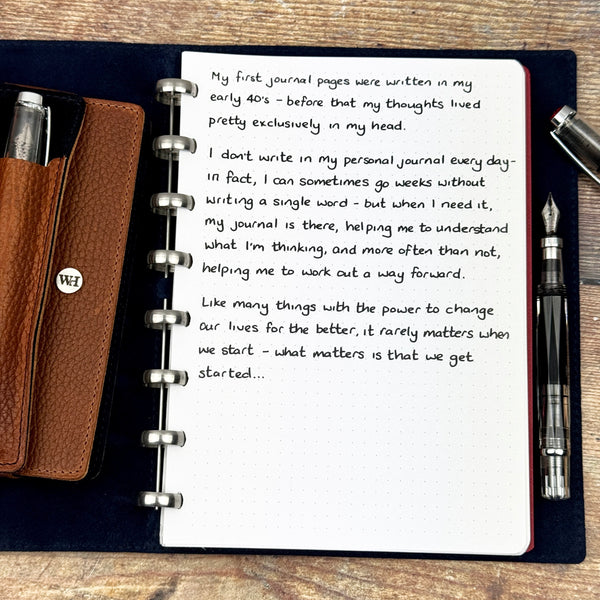 My first journal pages were written in my
early 40's – before that my thoughts lived
pretty exclusively in my head.
I don't write in my personal journal every day –
in fact, I can sometimes go weeks without
writing a single word – but when I need it,
my journal is there, helping me to understand
what I'm thinking, and more often than not,
helping me to work out a way forward.
Like many things with the power to change
our lives for the better, it rarely matters when
we start – what matters is that we get
started...
WH